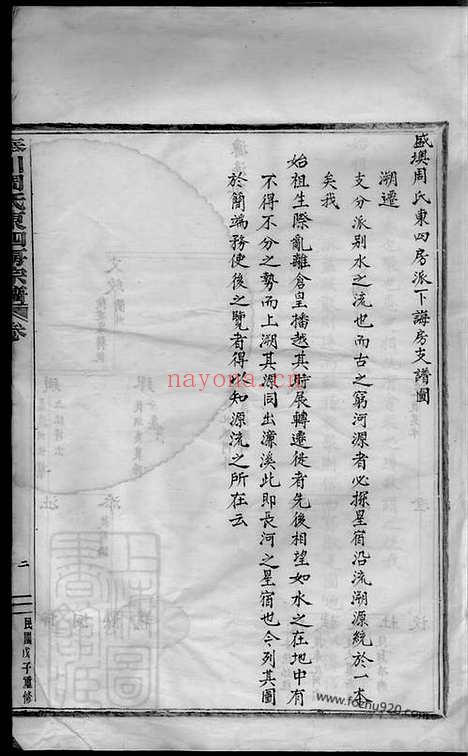 盛墺周氏東四房派下誨房支譜圖
溯遷
支分派别水之流也而古之窮河源者必探星宿沿流溯源統於一本
矣我
始祖生際亂離倉皇播越其時展轉遷徙者先後相望如水之在地中有
不得不分之勢而上溯其源同出濂溪此即長河之星宿也今列其圖
於簡端務使後之覽者得以知源流之所在云
川周氏東四房宗譜 卷
二
民國戊子重修
nayona.cn
www.fochu920.com